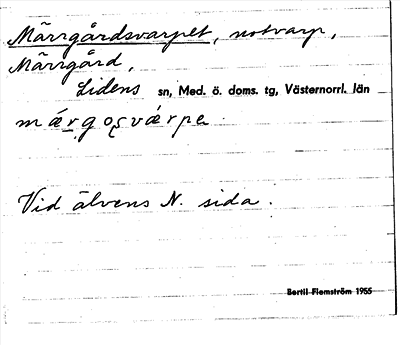 Märrgårdsvarpet, notvarp,
Märrgård,
Lidens sn, Med. ö. doms. tg, Västernorrl. län
mærgoșværpe
Vid älvens N. sida.
Bertil Flemström 1955